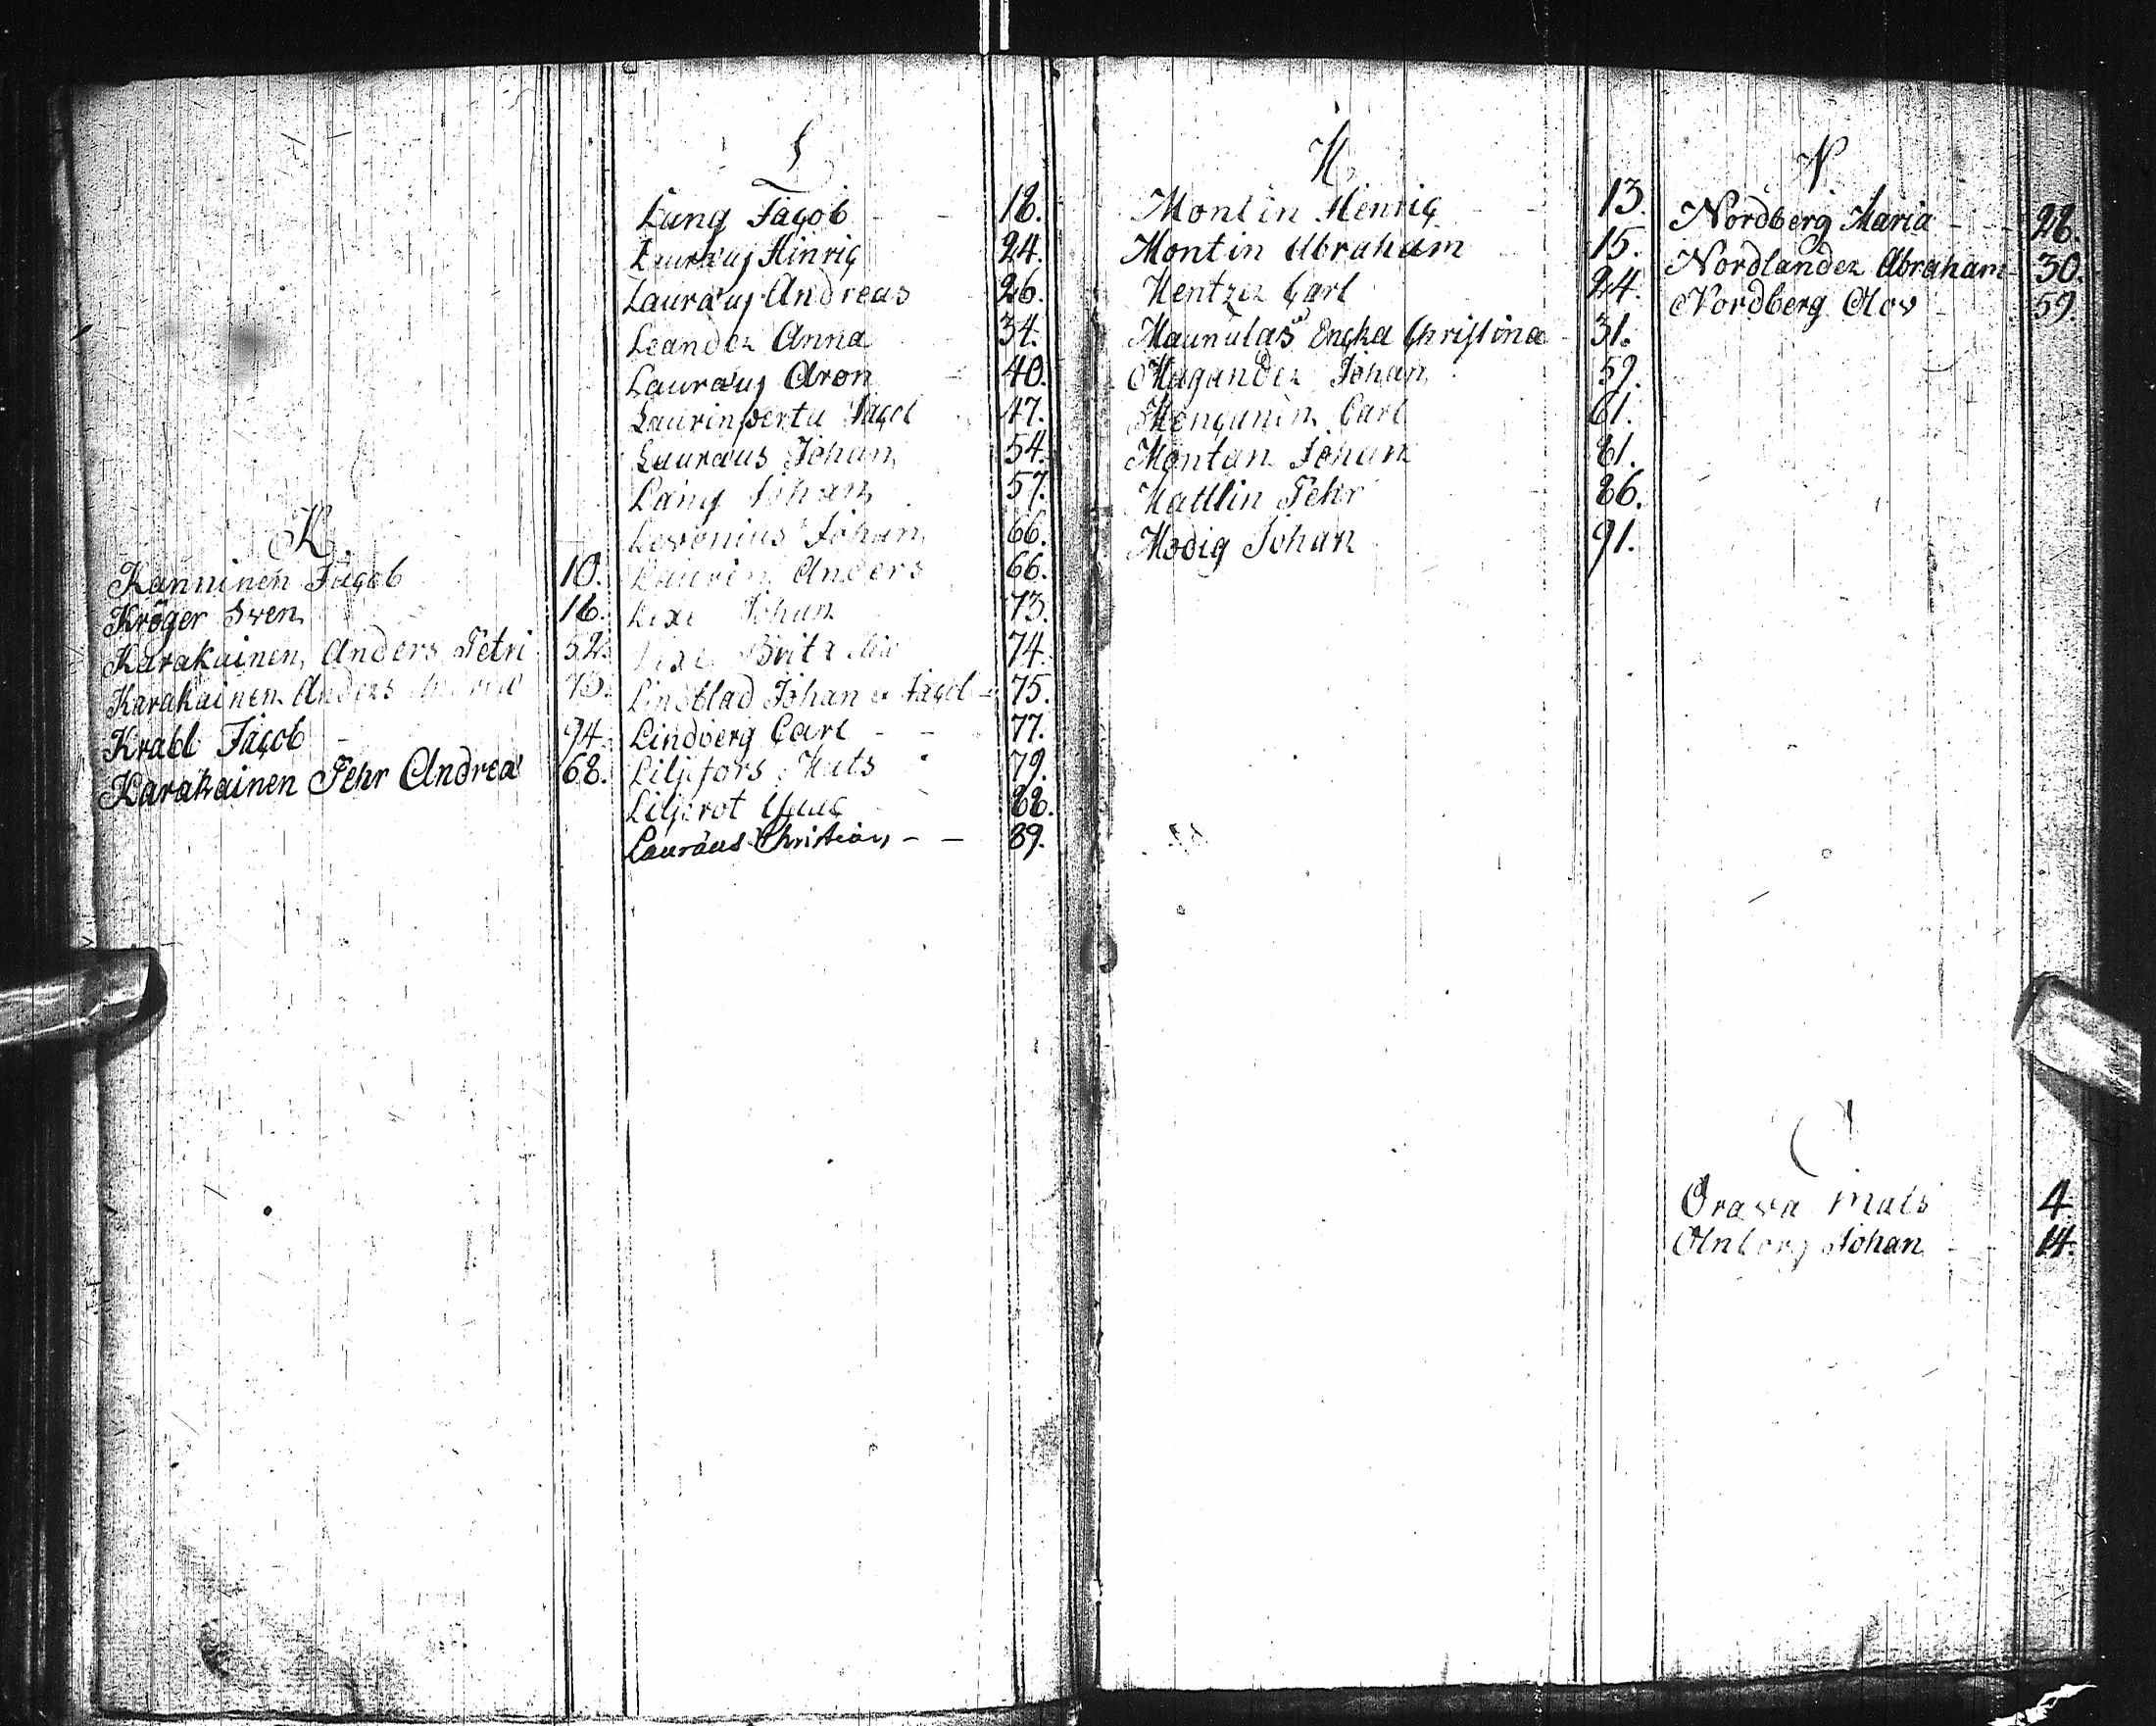 K.
Kanninen Jacob 10.
Kröger Sven 16.
Karakainen, Anders Petri 52.
Karakainen Anders 73.
Krabb Jacob 94.
Karakainen Pehr Andreæ 68.
L
Lang Jacob 18.
Lauræus Hinric 24.
Lauræus Andreas 26.
Leander Anna 34.
Lauræus Aron 40.
Laurinperta Jacob 47.
Lauræus Johan 54.
Lång Johan 57.
Levonius Johan 66.
Laurin Anders 66.
Lexe Johan 73.
Lexe Brita 74.
Lindblad Johan o Jacob 75.
Lindberg Carl 77.
Liljefors Mats 79.
Liljerot Isaac 88.
Lauræus Christian 89.
M.
Montin Henric 13.
Montin Abraham 15.
Mentzer Carl 24.
Maunulas Encka Christina 31.
Magander Johan 59.
Carl 61.
Montan Johan 81.
Matlin Pehr 86.
Modig Johan 91.
N.
Nordberg Maria 28.
Nordlander Abraham 30.
Nordberg Olov 59.
O
Orava Mats 4.
Johan 14.